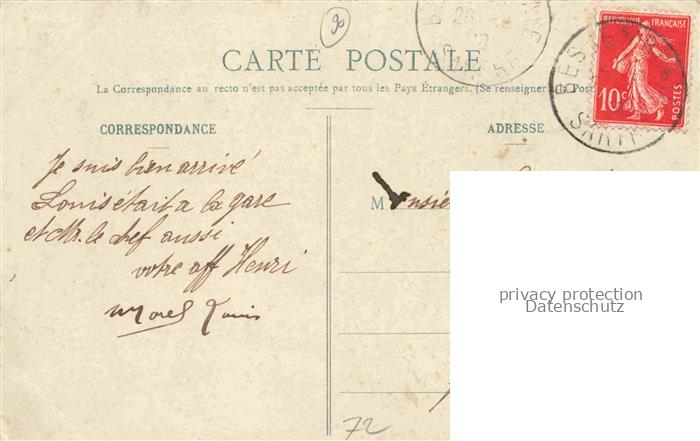 90
CARTE POSTALE
La Correspondance au recto n'est pas acceptée par tous les Pays Étrangers. (Se renseigner à la Post
CORRESPONDANCE
ADRESSE
RÉPUBLIQUE FRANÇAISE
10c
POSTES
SARTHE
Je suis bien arrivé
Louis était a la gare
et Mr. le chef aussi
votre aff Henri
Morel Louis
Monsie
privacy protection
Datenschutz
72